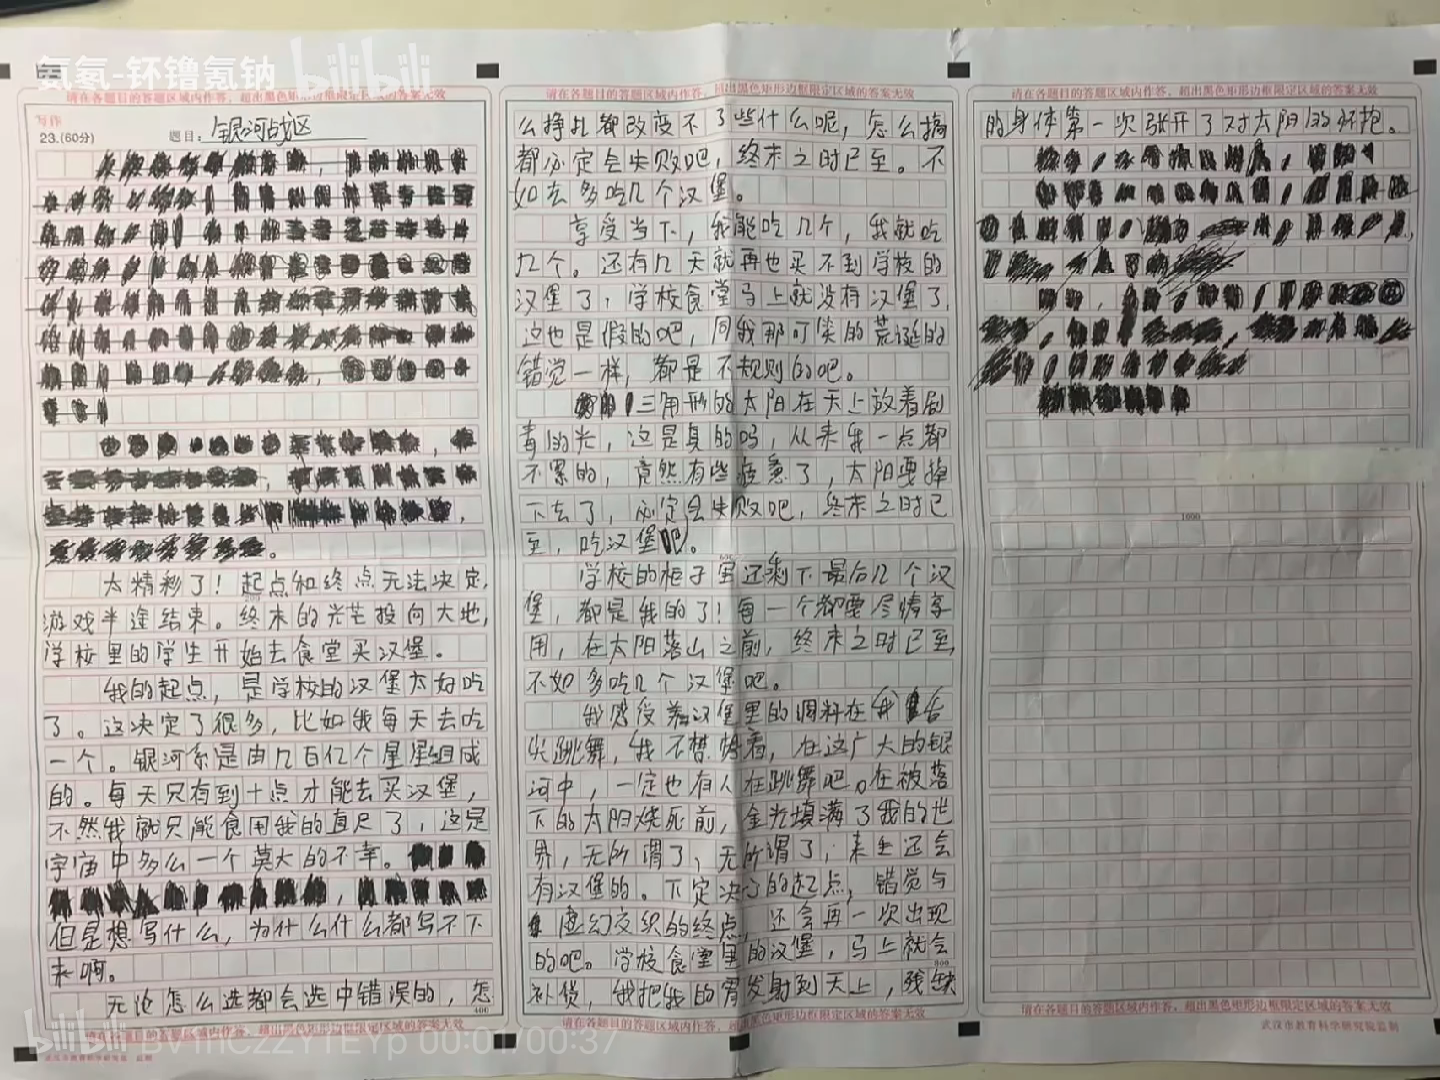 氨氢-钚镥氪钠 bilibili
请在各题目的答题区域内作答，超出黑色矩形边框限定区域的答案无效
写作
23.(60分) 题目：银河战区
太精彩了！起点和终点无法决定，
游戏半途结束。终末的光芒投向大地，
学校里的学生开始去食堂买汉堡。
我的起点，是学校的汉堡太好吃
了。这决定了很多，比如我每天去吃
一个。银河系是由几百亿个星星组成
的。每天只有到十点才能去买汉堡，
不然我就只能食用我的直尺了，这是
宇宙中多么一个莫大的不幸。
但是想写什么，为什么什么都写不下
来啊。
无论怎么选都会选中错误的，怎
400
请在各题目的答题区域内作答，超出黑色矩形边框限定区域的答案无效
请在各题目的答题区域内作答，超出黑色矩形边框限定区域的答案无效
么挣扎都改变不了些什么呢，怎么搞
都必定会失败吧，终末之时已至。不
如去多吃几个汉堡。
享受当下，我能吃几个，我就吃
几个。还有几天就再也买不到学校的
汉堡了，学校食堂马上就没有汉堡了，
这也是假的吧，同我那可笑的荒诞的
错觉一样，都是不规则的吧。
三角形的太阳在天上放着剧
毒的光，这是真的吗，从来我一点都
不累的，竟然有些疲惫了，太阳要掉
下去了，必定会失败吧，终末之时已
至，吃汉堡吧。
600
学校的柜子里还剩下最后几个汉
堡，都是我的了！每一个都要尽情享
用，在太阳落山之前，终末之时已至，
不如多吃几个汉堡吧。
我感受着汉堡里的调料在我舌
尖跳舞，我不禁想着，在这广大的银
河中，一定也有人在跳舞吧。在被落
下的太阳烧死前，金光填满了我的世
界，无所谓了，无所谓了，来生还会
有汉堡的。下定决了的起点，错觉与
虚幻交织的终点，还会再一次出现
的吧。学校食堂里的汉堡，马上就会
800
补货，我把我的胃发射到天上，残缺
请在各题目的答题区域内作答，超出黑色矩形边框限定区域的答案无效
请在各题目的答题区域内作答，超出黑色矩形边框限定区域的答案无效
的身体第一次张开了对太阳的怀抱。
1000
请在各题目的答题区域内作答，超出黑色矩形边框限定区域的答案无效
武汉市教育科学研究院监制
bilibili 00:01/00:37